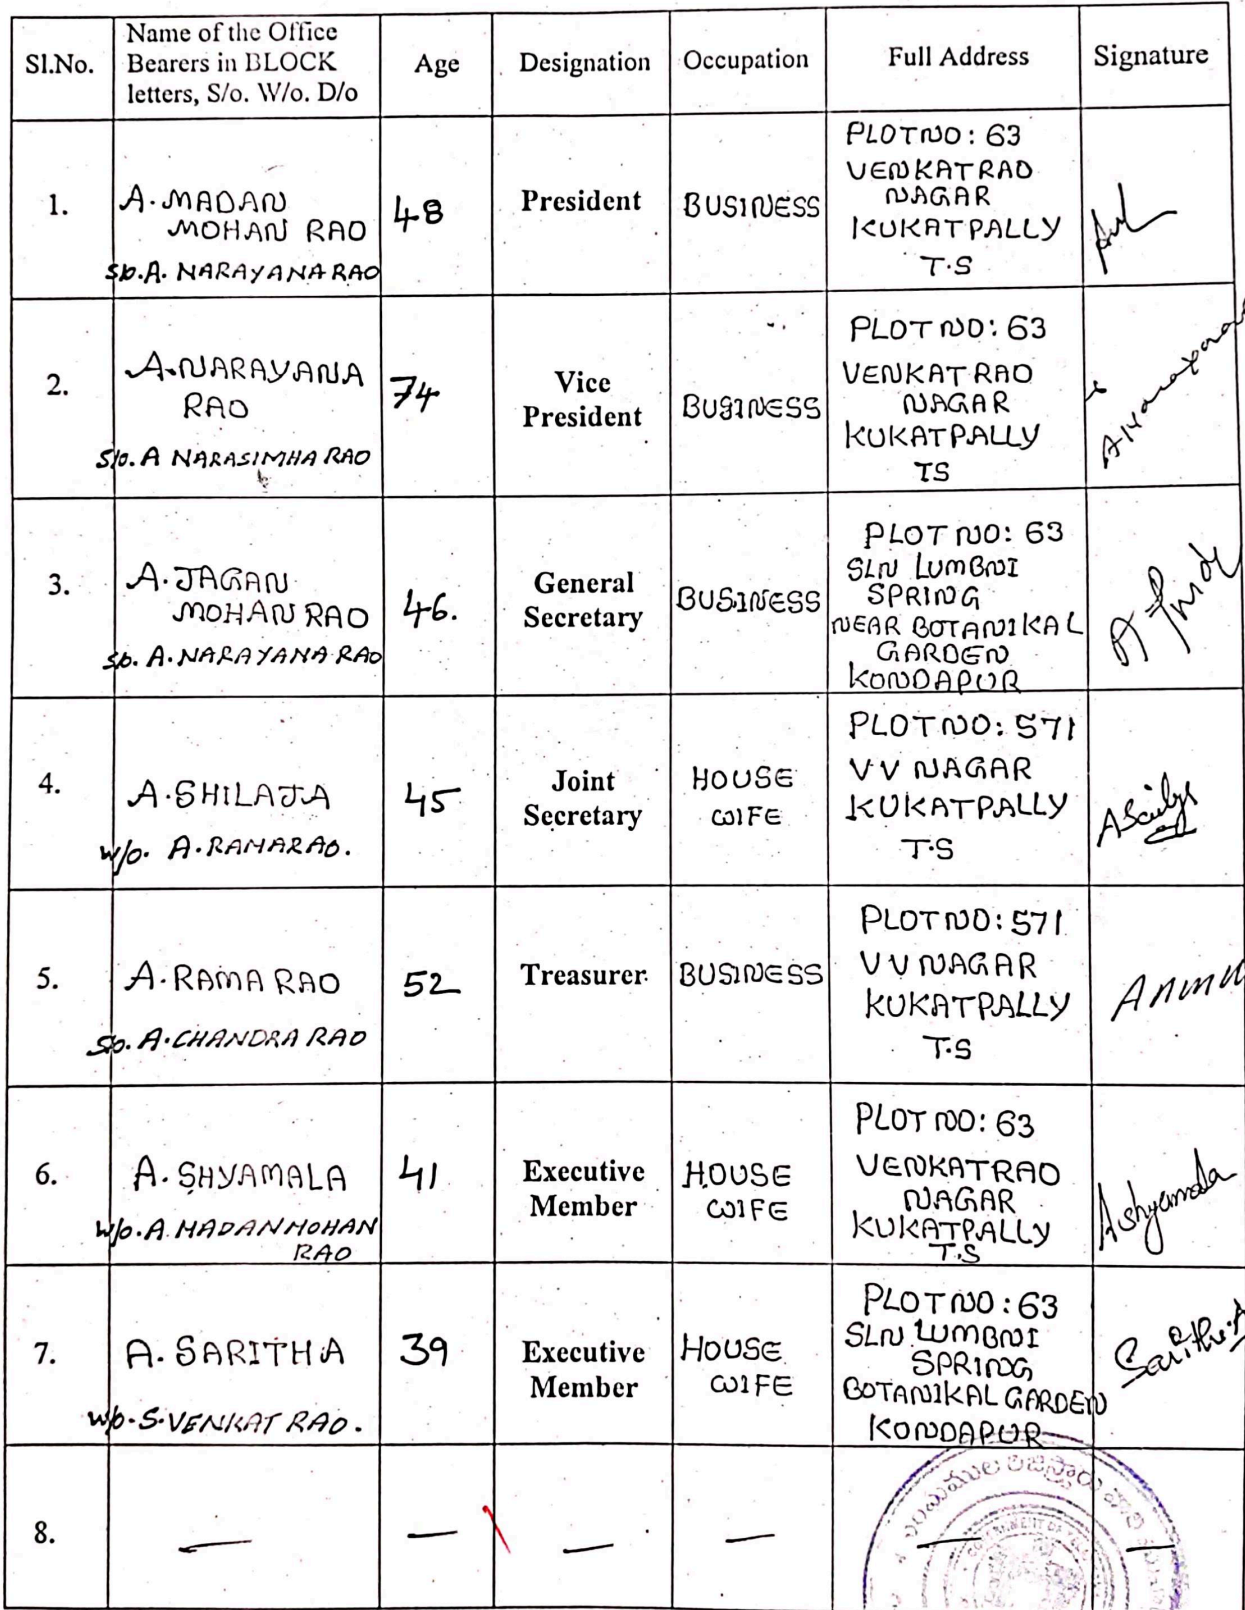 Sl.No.
Name of the Office
Bearers in BLOCK
letters, S/o. W/o. D/o
Age
Designation
Occupation
Full Address
Signature
1.
A. MADAN
MOHAN RAO
S/o. A. NARAYANA RAO
48
President
BUSINESS
PLOT NO: 63
VENKATRAO
NAGAR
KUKATPALLY
T.S
2.
A. NARAYANA
RAO
S/o. A NARASIMHA RAO
74
Vice
President
BUSINESS
PLOT NO: 63
VENKAT RAO
NAGAR
KUKATPALLY
TS
3.
A. JAGAN
MOHAN RAO
S/o. A. NARAYANA RAO
46.
General
Secretary
BUSINESS
PLOT NO: 63
SLN LUMBNI
SPRING
NEAR BOTANIKAL
GARDEN
KONDAPUR
4.
A. SHILAJA
W/o. A. RAMARAO.
45
Joint
Secretary
HOUSE
WIFE
PLOT NO: 571
V V NAGAR
KUKATPALLY
T.S
5.
A. RAMA RAO
S/o. A. CHANDRA RAO
52
Treasurer
BUSINESS
PLOT NO: 571
V V NAGAR
KUKATPALLY
T.S
6.
A. SHYAMALA
W/o. A. MADAN MOHAN
RAO
41
Executive
Member
HOUSE
WIFE
PLOT NO: 63
VENKATRAO
NAGAR
KUKATPALLY
T.S
A shyamala
7.
A. SARITHA
W/o. S. VENKAT RAO.
39
Executive
Member
HOUSE
WIFE
PLOT NO: 63
SLN LUMBNI
SPRING
BOTANIKAL GARDEN
KONDAPUR
Saritha.A
8.